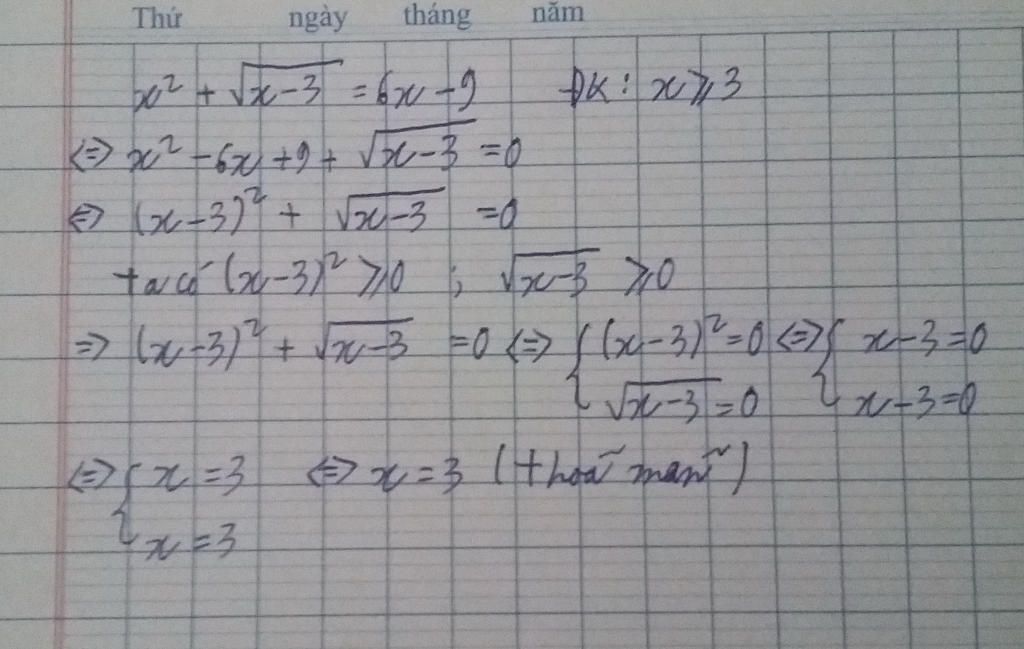 Thứ ngày tháng năm
x² + √(x-3) = 6x - 9 ĐK: x ⩾ 3
<=> x² - 6x + 9 + √(x-3) = 0
<=> (x-3)² + √(x-3) = 0
ta có (x-3)² ⩾ 0 ; √(x-3) ⩾ 0
=> (x-3)² + √(x-3) = 0 <=> { (x-3)² = 0 <=> { x-3 = 0
√(x-3) = 0 x-3 = 0
<=> { x = 3 <=> x = 3 (thoã mãn)
x = 3